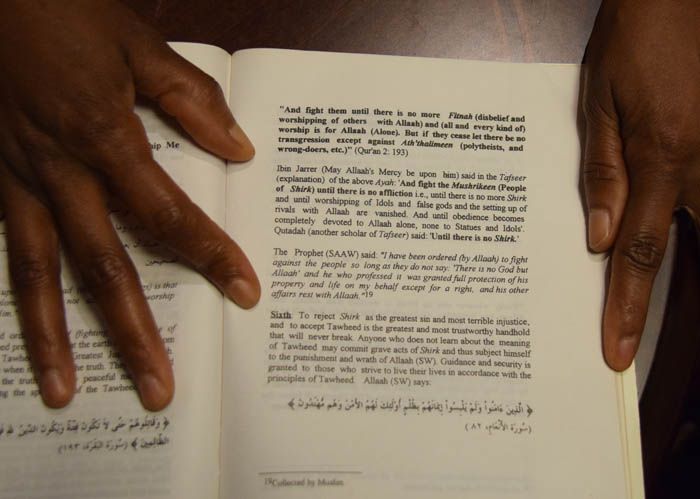 ship Me
s) is that
worship
fighting
me of
the earth
Tawheed
Greatest
when
the truth. The
the
peaceful
the
of the Tawheed
﴿ وَقَاتِلُوهُمْ حَتَّى لَا تَكُونَ فِتْنَةٌ وَيَكُونَ الدِّينُ لِلَّهِ
الظَّالِمِينَ ﴾ (سورة البقرة، ١٩٣)
"And fight them until there is no more Fitnah (disbelief and
worshipping of others with Allaah) and (all and every kind of)
worship is for Allaah (Alone). But if they cease let there be no
transgression except against Ath'thalimeen (polytheists, and
wrong-doers, etc.)" (Qur'an 2: 193)
Ibin Jarrer (May Allaah's Mercy be upon him) said in the Tafseer
(explanation) of the above Ayah: 'And fight the Mushrikeen (People
of Shirk) until there is no affliction i.e., until there is no more Shirk
and until worshipping of Idols and false gods and the setting up of
rivals with Allaah are vanished. And until obedience becomes
completely devoted to Allaah alone, none to Statues and Idols'.
Qutadah (another scholar of Tafseer) said: 'Until there is no Shirk.'
The Prophet (SAAW) said: "I have been ordered (by Allaah) to fight
against the people so long as they do not say: 'There is no God but
Allaah' and he who professed it was granted full protection of his
property and life on my behalf except for a right, and his other
affairs rest with Allaah."19
Sixth: To reject Shirk as the greatest sin and most terrible injustice,
and to accept Tawheed is the greatest and most trustworthy handhold
that will never break. Anyone who does not learn about the meaning
of Tawheed may commit grave acts of Shirk and thus subject himself
to the punishment and wrath of Allaah (SW). Guidance and security is
granted to those who strive to live their lives in accordance with the
principles of Tawheed. Allaah (SW) says:
﴿ الَّذِينَ ءَامَنُواْ وَلَمْ يَلْبِسُواْ إِيمَانَهُم بِظُلْمٍ أُوْلَئِكَ لَهُمُ الأَمْنُ وَهُم مُّهْتَدُونَ ﴾
(سورة الأنعام، ٨٢)
19Collected by Muslim.